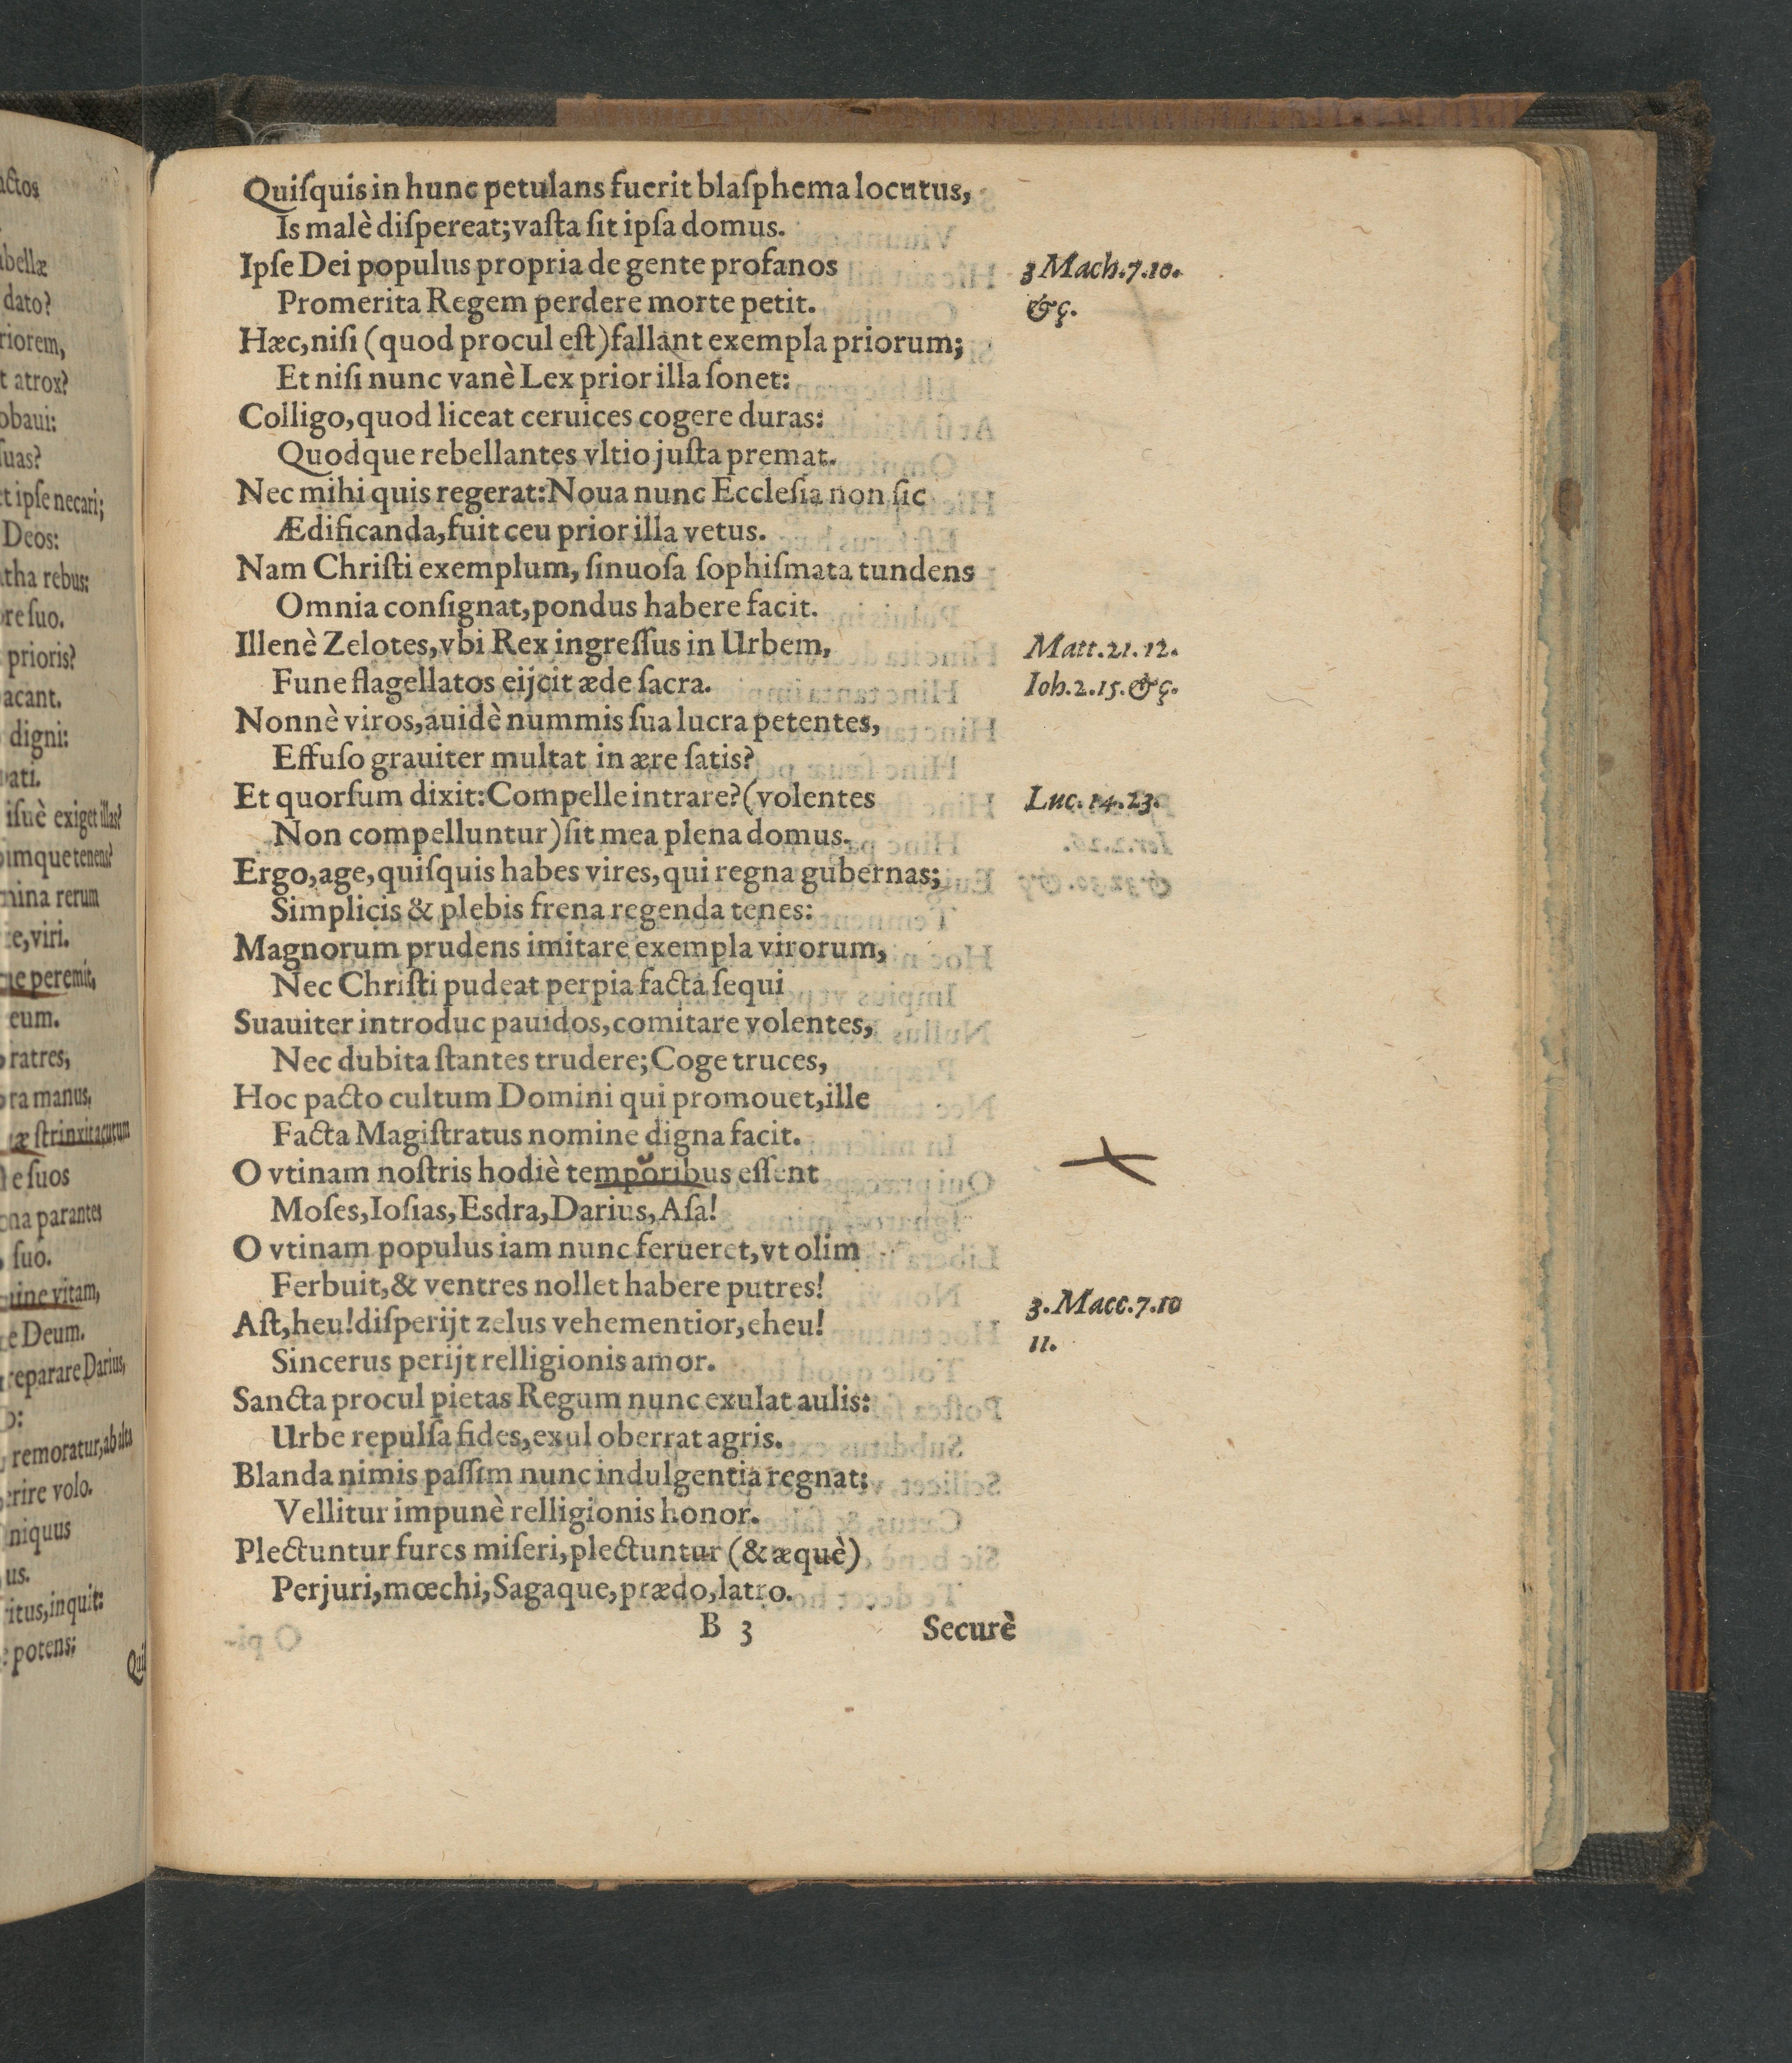 actos
abellæ
dato?
riorem,
t atrox?
obaui:
ſuas?
et ipſe necari;
Deos:
atha rebus:
ore ſuo.
prioris?
acant.
digni:
ati.
iſuè exiget illas?
imque tenens?
mina rerum
te, viri.
ue peremit,
eum.
ratres,
ora manus,
æ ſtrinxit acutum
e ſuos
ona parantes
ſuo.
uine vitam,
e Deum.
reparare Darius,
o:
remoratur, ab alta
erire volo.
niquus
us.
ritus, inquit:
potens:
Qui
Quiſquis in hunc petulans fuerit blaſphema locutus,
Is malè diſpereat; vaſta ſit ipſa domus.
Ipſe Dei populus propria de gente profanos
3 Mach. 7. 10.
Promerita Regem perdere morte petit.
&ç.
Hæc, niſi (quod procul eſt) fallant exempla priorum;
Et niſi nunc vanè Lex prior illa ſonet:
Colligo, quod liceat ceruices cogere duras:
Quodque rebellantes vltio juſta premat.
Nec mihi quis regerat: Noua nunc Eccleſia non ſic
Ædificanda, fuit ceu prior illa vetus.
Nam Chriſti exemplum, ſinuoſa ſophiſmata tundens
Omnia conſignat, pondus habere facit.
Illenè Zelotes, vbi Rex ingreſſus in Urbem,
Matt. 21. 12.
Fune flagellatos eijcit æde ſacra.
Ioh. 2. 15. &ç.
Nonnè viros, auidè nummis ſua lucra petentes,
Effuſo grauiter multat in ære ſatis?
Et quorſum dixit: Compelle intrare? (volentes
Luc. 14. 23.
Non compelluntur) ſit mea plena domus.
Ergo, age, quiſquis habes vires, qui regna gubernas;
Simplicis & plebis frena regenda tenes:
Magnorum prudens imitare exempla virorum,
Nec Chriſti pudeat perpia facta ſequi
Suauiter introduc pauidos, comitare volentes,
Nec dubita ſtantes trudere; Coge truces,
Hoc pacto cultum Domini qui promouet, ille
Facta Magiſtratus nomine digna facit.
O vtinam noſtris hodiè temporibus eſſent
Moſes, Ioſias, Esdra, Darius, Aſa!
O vtinam populus iam nunc ferueret, vt olim
Ferbuit, & ventres nollet habere putres!
3. Macc. 7. 10
Aſt, heu! diſperijt zelus vehementior, eheu!
11.
Sincerus perijt relligionis amor.
Sancta procul pietas Regum nunc exulat aulis:
Urbe repulſa fides, exul oberrat agris.
Blanda nimis paſſim nunc indulgentia regnat:
Vellitur impunè relligionis honor.
Plectuntur fures miſeri, plectuntur (& æquè)
Perjuri, mœchi, Sagaque, prædo, latro.
B 3
Securè